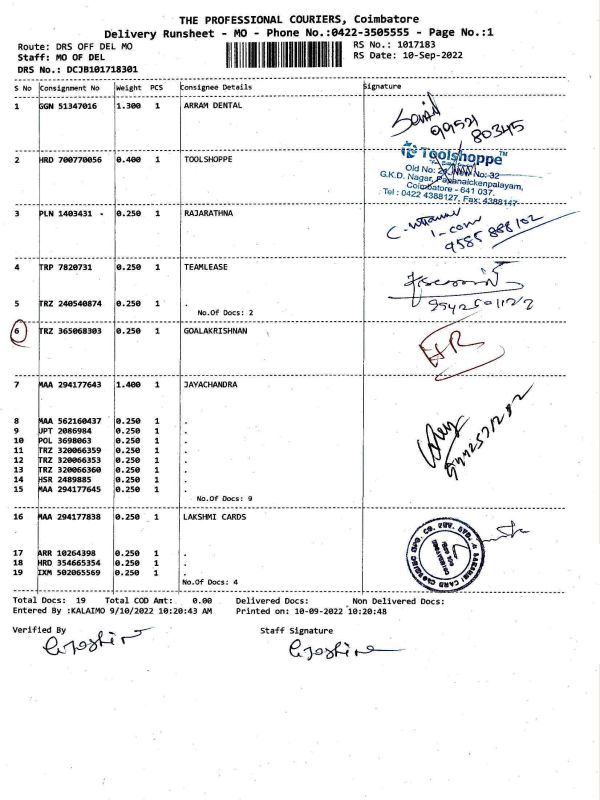 THE PROFESSIONAL COURIERS, Coimbatore
Delivery Runsheet - MO - Phone No.:0422-3505555 - Page No.:1
Route: DRS OFF DEL MO RS No.: 1017183
Staff: MO OF DEL RS Date: 10-Sep-2022
DRS No.: DCJB101718301
S No Consignment No Weight PCS Consignee Details Signature
1 GGN 51347016 1.300 1 ARRAM DENTAL
99521
80345
2 HRD 700770056 0.400 1 TOOLSHOPPE
Toolshoppe™
Old No: No: 32
G.K.D. Nagar, Papanaickenpalayam,
Coimbatore - 641 037.
Tel : 0422 4388127, Fax: 4388147
3 PLN 1403431 - 0.250 1 RAJARATHNA
9585 888102
4 TRP 7820731 0.250 1 TEAMLEASE
5 TRZ 240540874 0.250 1 .
No.Of Docs: 2
6 TRZ 365068303 0.250 1 GOALAKRISHNAN
7 MAA 294177643 1.400 1 JAYACHANDRA
8 MAA 562160437 0.250 1 .
9 UPT 2086984 0.250 1 .
10 POL 3698063 0.250 1 .
11 TRZ 320066359 0.250 1 .
12 TRZ 320066353 0.250 1 .
13 TRZ 320066360 0.250 1 .
14 HSR 2489885 0.250 1 .
15 MAA 294177645 0.250 1 .
No.Of Docs: 9
16 MAA 294177838 0.250 1 LAKSHMI CARDS
17 ARR 10264398 0.250 1 .
18 HRD 354665354 0.250 1 .
19 IXM 502065569 0.250 1 .
No.Of Docs: 4
Total Docs: 19 Total COD Amt: 0.00 Delivered Docs: Non Delivered Docs:
Entered By :KALAIMO 9/10/2022 10:20:43 AM Printed on: 10-09-2022 10:20:48
Verified By Staff Signature